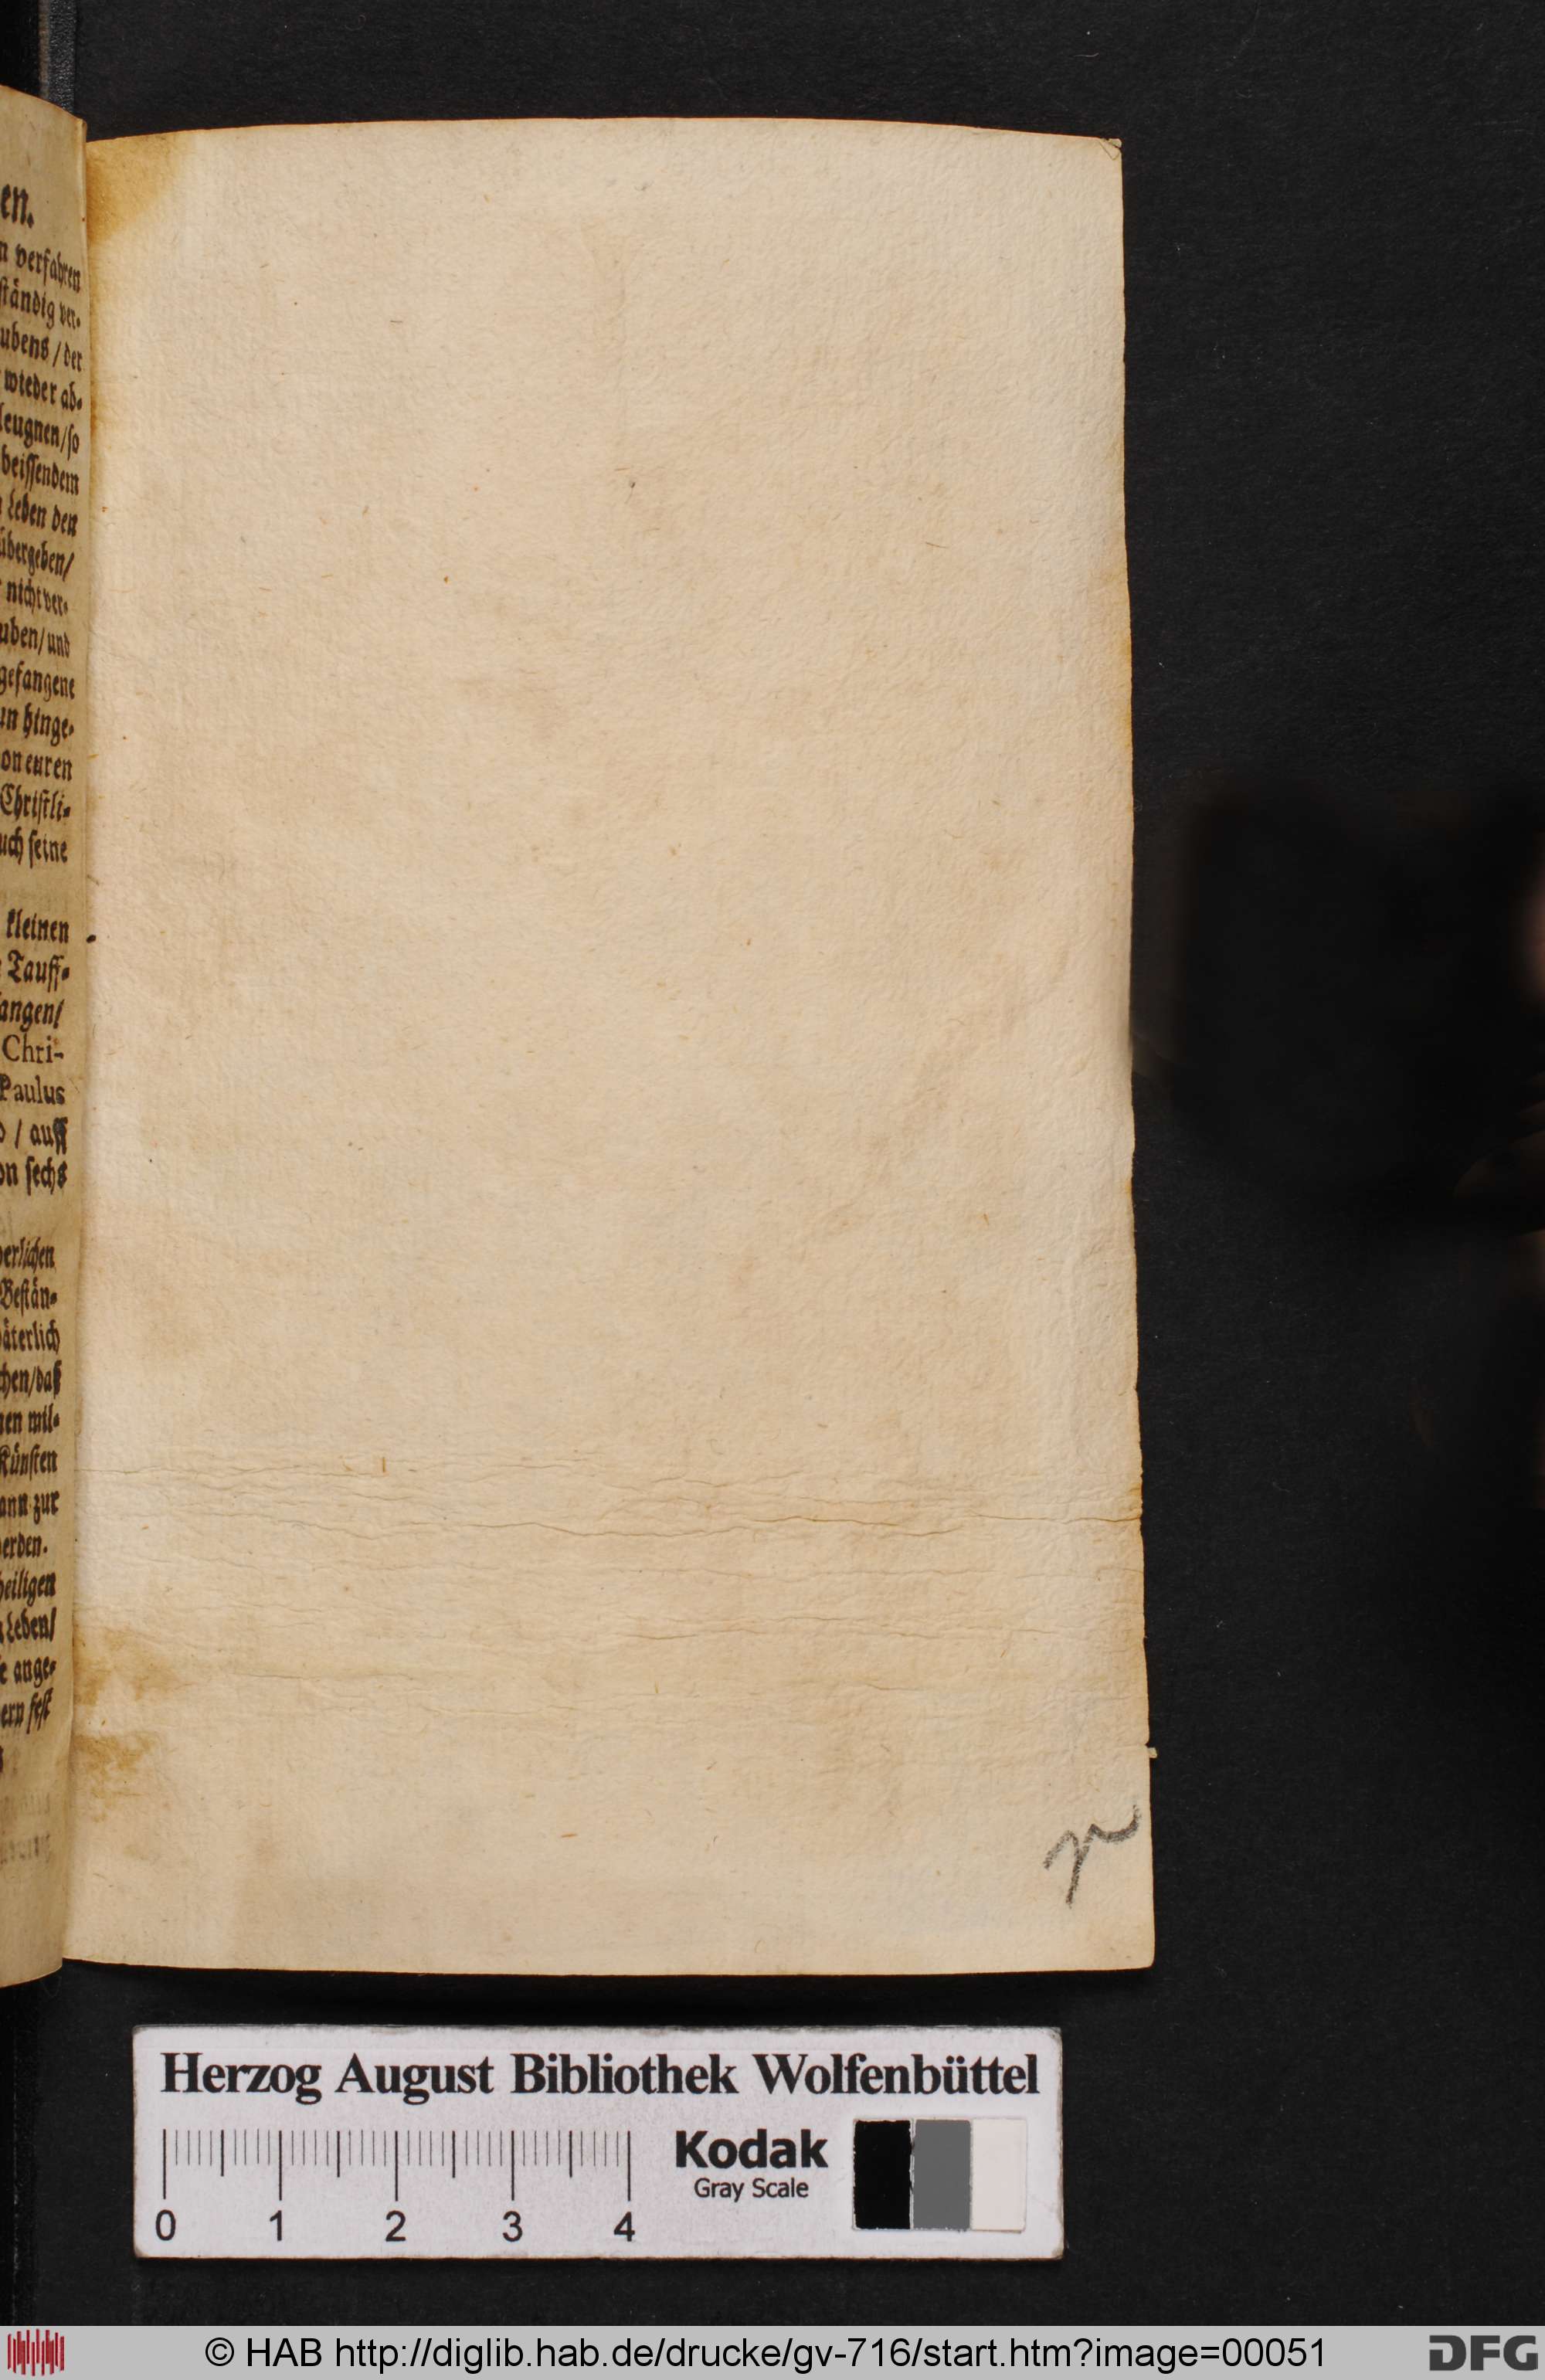 en.
verfahren
ständig ver-
ubens / der
wieder ab-
leugnen/so
beissendem
Leben den
übergeben/
nicht ver-
uben/und
gefangene
un hinge-
on euren
Christli-
uch seine
kleinen
Tauff-
angen/
Chri-
Paulus
/ auff
on sechs
erlichen
Bestän-
äterlich
chen/daß
nen mil-
Künsten
ann zur
erden.
heiligen
Leben/
e ange-
ern fest
Herzog August Bibliothek Wolfenbüttel
Kodak
Gray Scale
0 1 2 3 4
© HAB http://diglib.hab.de/drucke/gv-716/start.htm?image=00051
DFG